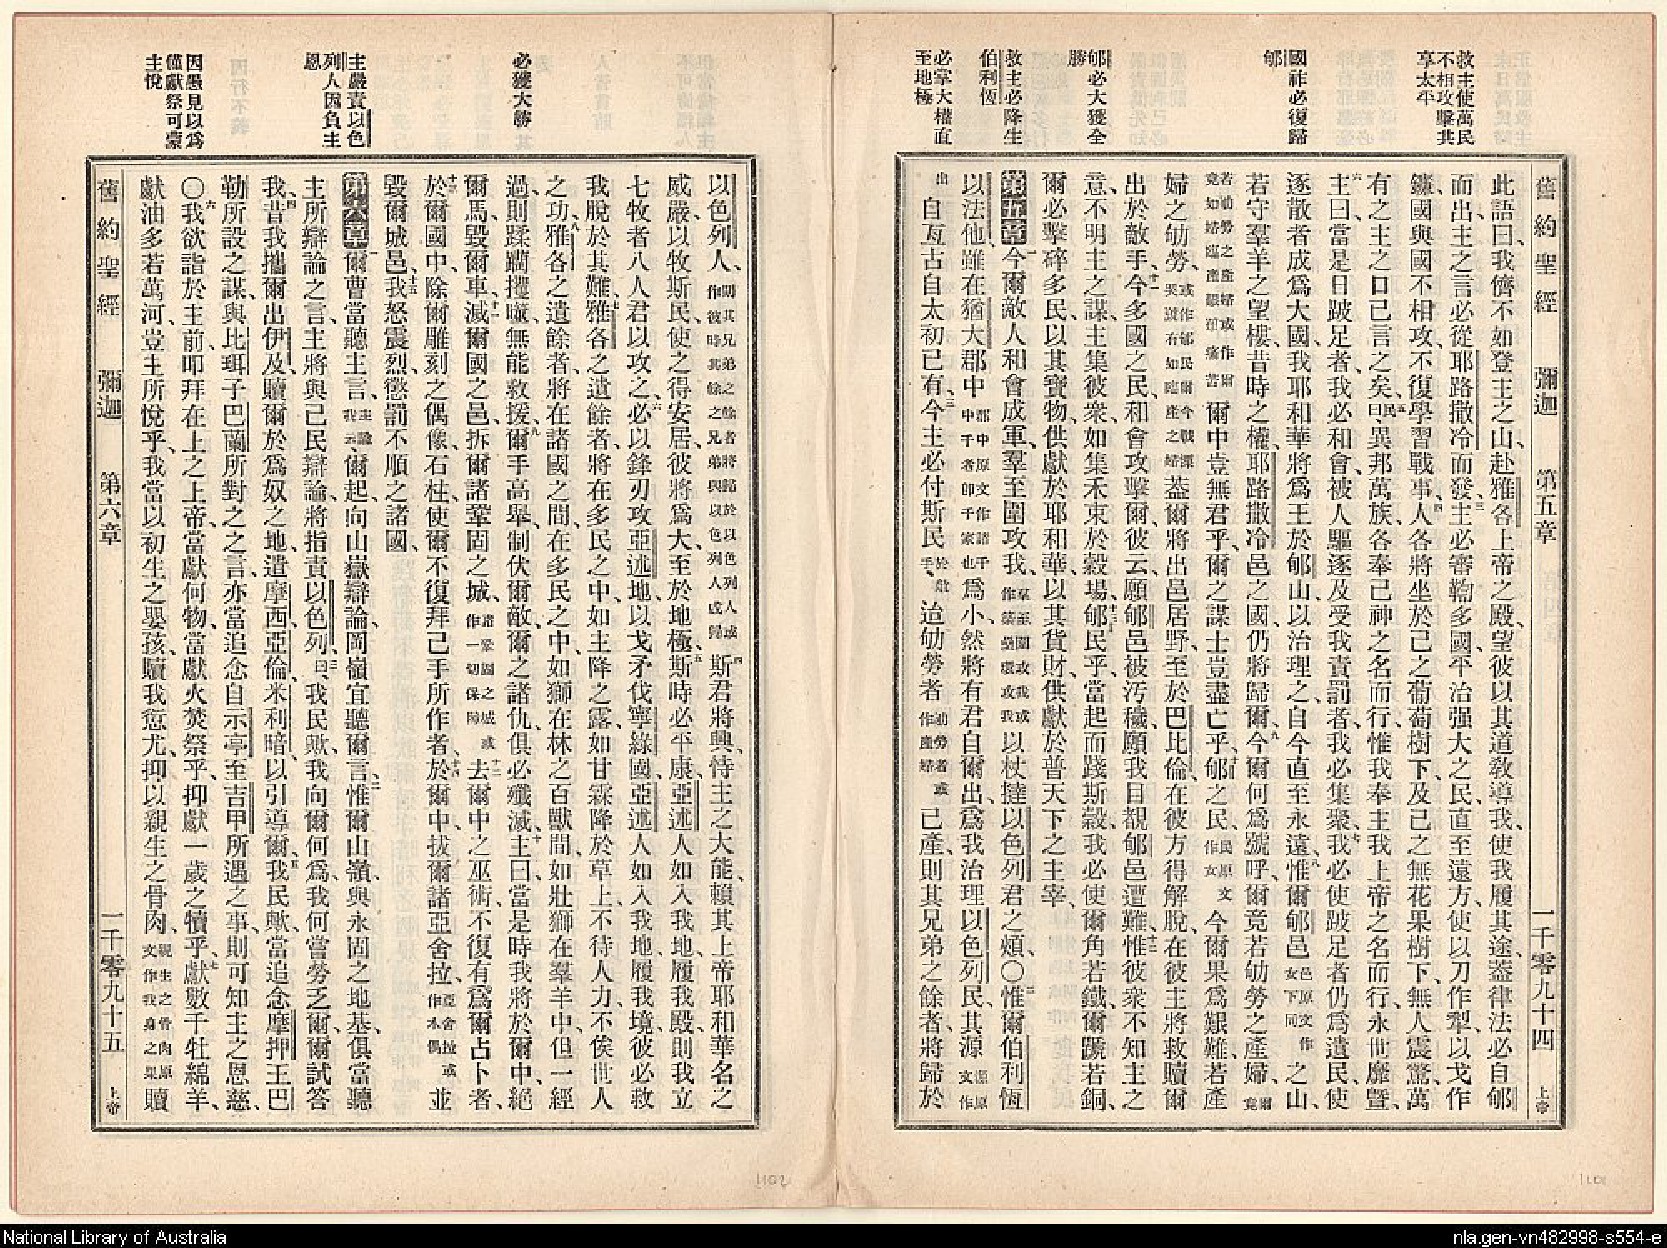 舊約聖經 彌迦 第五章 一千零九十四 上帝
救主使萬民
不相攻擊共
享太平
國祚必復歸
郇
郇必大獲全
勝
救主必降生
伯利恆
必掌大權直
至地極
此語曰、我儕不如登主之山、赴雅各上帝之殿、望彼以其道敎導我、使我履其途、蓋律法必自郇
而出、主之言必從耶路撒冷而發、三主必審鞫多國、平治强大之民、直至遠方、使以刀作犁、以戈作
鐮、國與國不相攻、不復學習戰事、四人各將坐於己之葡萄樹下、及己之無花果樹下、無人震驚、萬
有之主之口已言之矣、五民曰、異邦萬族、各奉己神之名而行、惟我奉主我上帝之名而行、永世靡曁、
六主曰、當是日、跛足者、我必和會、被人驅逐及受我責罰者、我必集聚、七我必使跛足者仍爲遺民、使
逐散者成爲大國、我耶和華將爲王於郇山以治理之、自今直至永遠、八惟爾郇邑 邑原文作女下同 之山、
若守羣羊之望樓、昔時之權、耶路撒冷邑之國、仍將歸爾、九今爾何爲號呼、爾竟若劬勞之產婦、爾竟
若劬勞之產婦或作爾竟如婦臨產艱苦痛苦 爾中豈無君乎、爾之謀士豈盡亡乎、十郇之民 民原文作女 今爾果爲艱難、若產
婦之劬勞、 蓋爾將出邑居野、至於巴比倫、在彼方得解脫、在彼主將救贖爾
出於敵手、十一今多國之民、和會攻擊爾、彼云、願郇邑被汚穢、願我目覩郇邑遭難、十二惟彼衆不知主之
意、不明主之謀、主集彼衆、如集禾束於穀場、十三郇民乎、當起而踐斯穀、我必使爾角若鐵、爾蹏若銅、
爾必擊碎多民、以其寶物、供獻於耶和華、以其貨財、供獻於普天下之主宰、
第五章 一今爾敵人和會成軍、羣至圍攻我、 以杖撻以色列君之頰、〇二惟爾伯利恆
以法他、雖在猶大郡中 郡中原文作諸千中千者卽千家也 爲小、然將有君自爾出、爲我治理以色列民、其源 源原文作
出 自亙古自太初已有、三今主必付斯民 於敵手、 迨劬勞者 劬勞者或作產婦 已產、則其兄弟之餘者、將歸於
主嚴責以色
列人因負主
恩
必獲大勝
因愚見以爲
僅獻祭可蒙
主悅
以色列人、 則其兄弟之餘者將歸於以色列人或作彼時其餘之兄弟與以色列人咸歸 四斯君將興、恃主之大能、賴其上帝耶和華名之
威嚴、以牧斯民、使之得安居、彼將爲大、至於地極、五斯時必平康、亞述人如入我地、履我殿、則我立
七牧者八人君以攻之、六必以鋒刃攻亞述地、以戈矛伐寧綠國、亞述人如入我地、履我境、彼必救
我脫於其難、七雅各之遺餘者、將在多民之中、如主降之露、如甘霖降於草上、不待人力、不俟世人
之功、八雅各之遺餘者、將在諸國之間、在多民之中、如獅在林之百獸間、如壯獅在羣羊中、但一經
過、則蹂躪攫噬、無能救援、九爾手高舉、制伏爾敵、爾之諸仇、俱必殲滅、十主曰、當是時、我將於爾中、絕
爾馬、毀爾車、十一滅爾國之邑、拆爾諸鞏固之城、 諸鞏固之城或作一切保障 十二去爾中之巫術、不復有爲爾占卜者、
十三於爾國中、除爾雕刻之偶像、石柱、使爾不復拜己手所作者、十四於爾中、拔爾諸亞舍拉、 亞舍拉或作木偶 並
毀爾城邑、十五我怒震烈、懲罰不順之諸國、
第六章 一爾曹當聽主言、 爾起、向山嶽辯論、岡嶺宜聽爾言、二惟爾山嶺、與永固之地基、俱當聽
主所辯論之言、主將與己民辯論、將指責以色列、三曰、我民歟、我向爾何爲、我何嘗勞乏爾、爾試答
我、四昔我攜爾出伊及、贖爾於爲奴之地、遣摩西亞倫米利暗、以引導爾、五我民歟、當追念摩押王巴
勒所設之謀、與比珥子巴蘭所對之之言、亦當追念自示亭至吉甲所遇之事、則可知主之恩慈、
〇六我欲詣於主前、叩拜在上之上帝、當獻何物、當獻火焚祭乎、抑獻一歲之犢乎、七獻數千牡綿羊、
獻油多若萬河、豈主所悅乎、我當以初生之嬰孩、贖我愆尤、抑以親生之骨肉、 親生之骨肉原文作我身之果 贖
舊約聖經 彌迦 第六章 一千零九十五 上帝
1102
1101
National Library of Australia
nla.gen-vn482998-s554-e